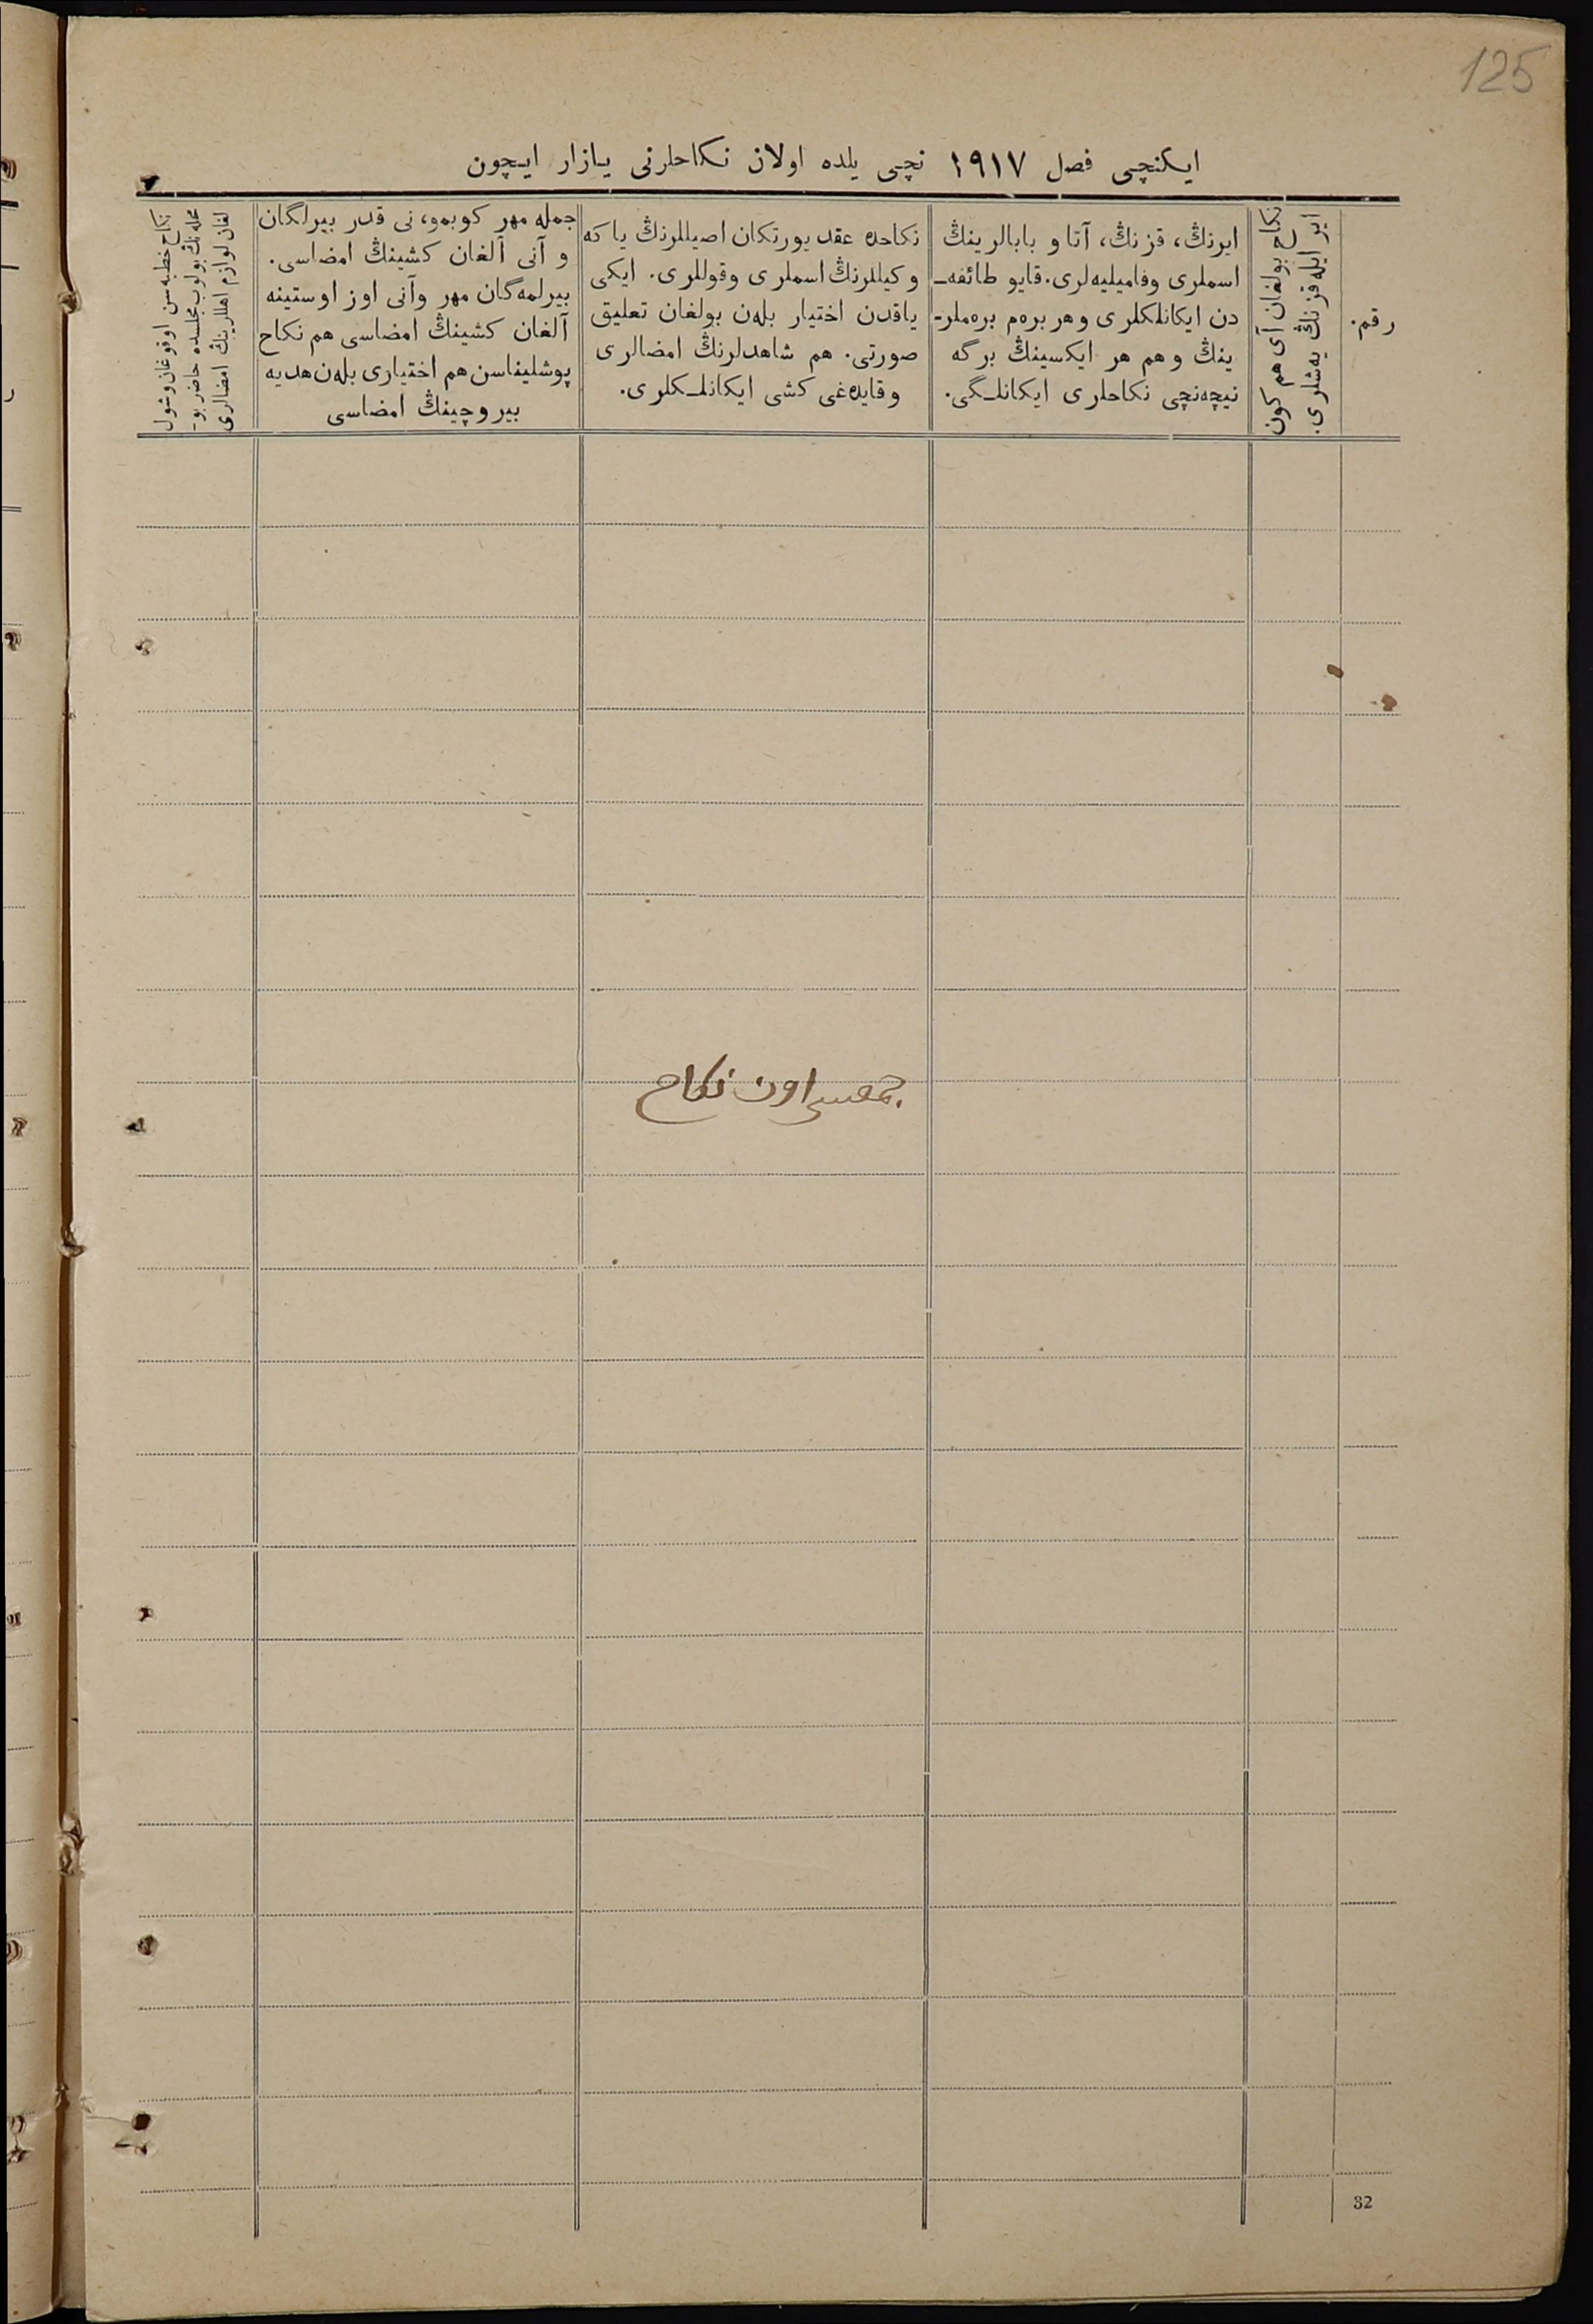 125
ایکنچی فصل ١٩١٧ نچی یلده اولان نکاحلرنی یازار ایچون
رقم.
نکاح بولغان آی هم کون
ایر ایله قز نڭ یەشلری.
ایرنڭ، قز نڭ، آتا و بابالرینڭ
اسملری وفامیلیه‌لری. قایو طائفه‌ـ
دن ایکانلکلری و هر بره‌م بره‌ملر-
ینڭ و هم هر ایکسینڭ برگه
نیچه‌نچی نکاحلری ایکانلـگی.
نکاحده عقد یورتکان اصیللرنڭ یا که
وکیللرنڭ اسملری وقوللری. ایکی
یاقدن اختیار بله‌ن بولغان تعلیق
صورتی. هم شاهدلرنڭ امضالری
وقایده‌غی کشی ایکانلـکلری.
جمله مهر کوبمو، نی قدر بیرلگان
و آنی آلغان کشینڭ امضاسی.
بیرلمه‌گان مهر وآنی اوز اوستینه
آلغان کشینڭ امضاسی هم نکاح
پوشلیناسن هم اختیاری بله‌ن هدیه
بیروچینڭ امضاسی
نکاح خطبه سن اوقوغان وشول
محله نڭ بولوب مجلسده حاضر بو-
لغان لوازم اهللرینڭ امضالری
جمعسی اون نکاح
32